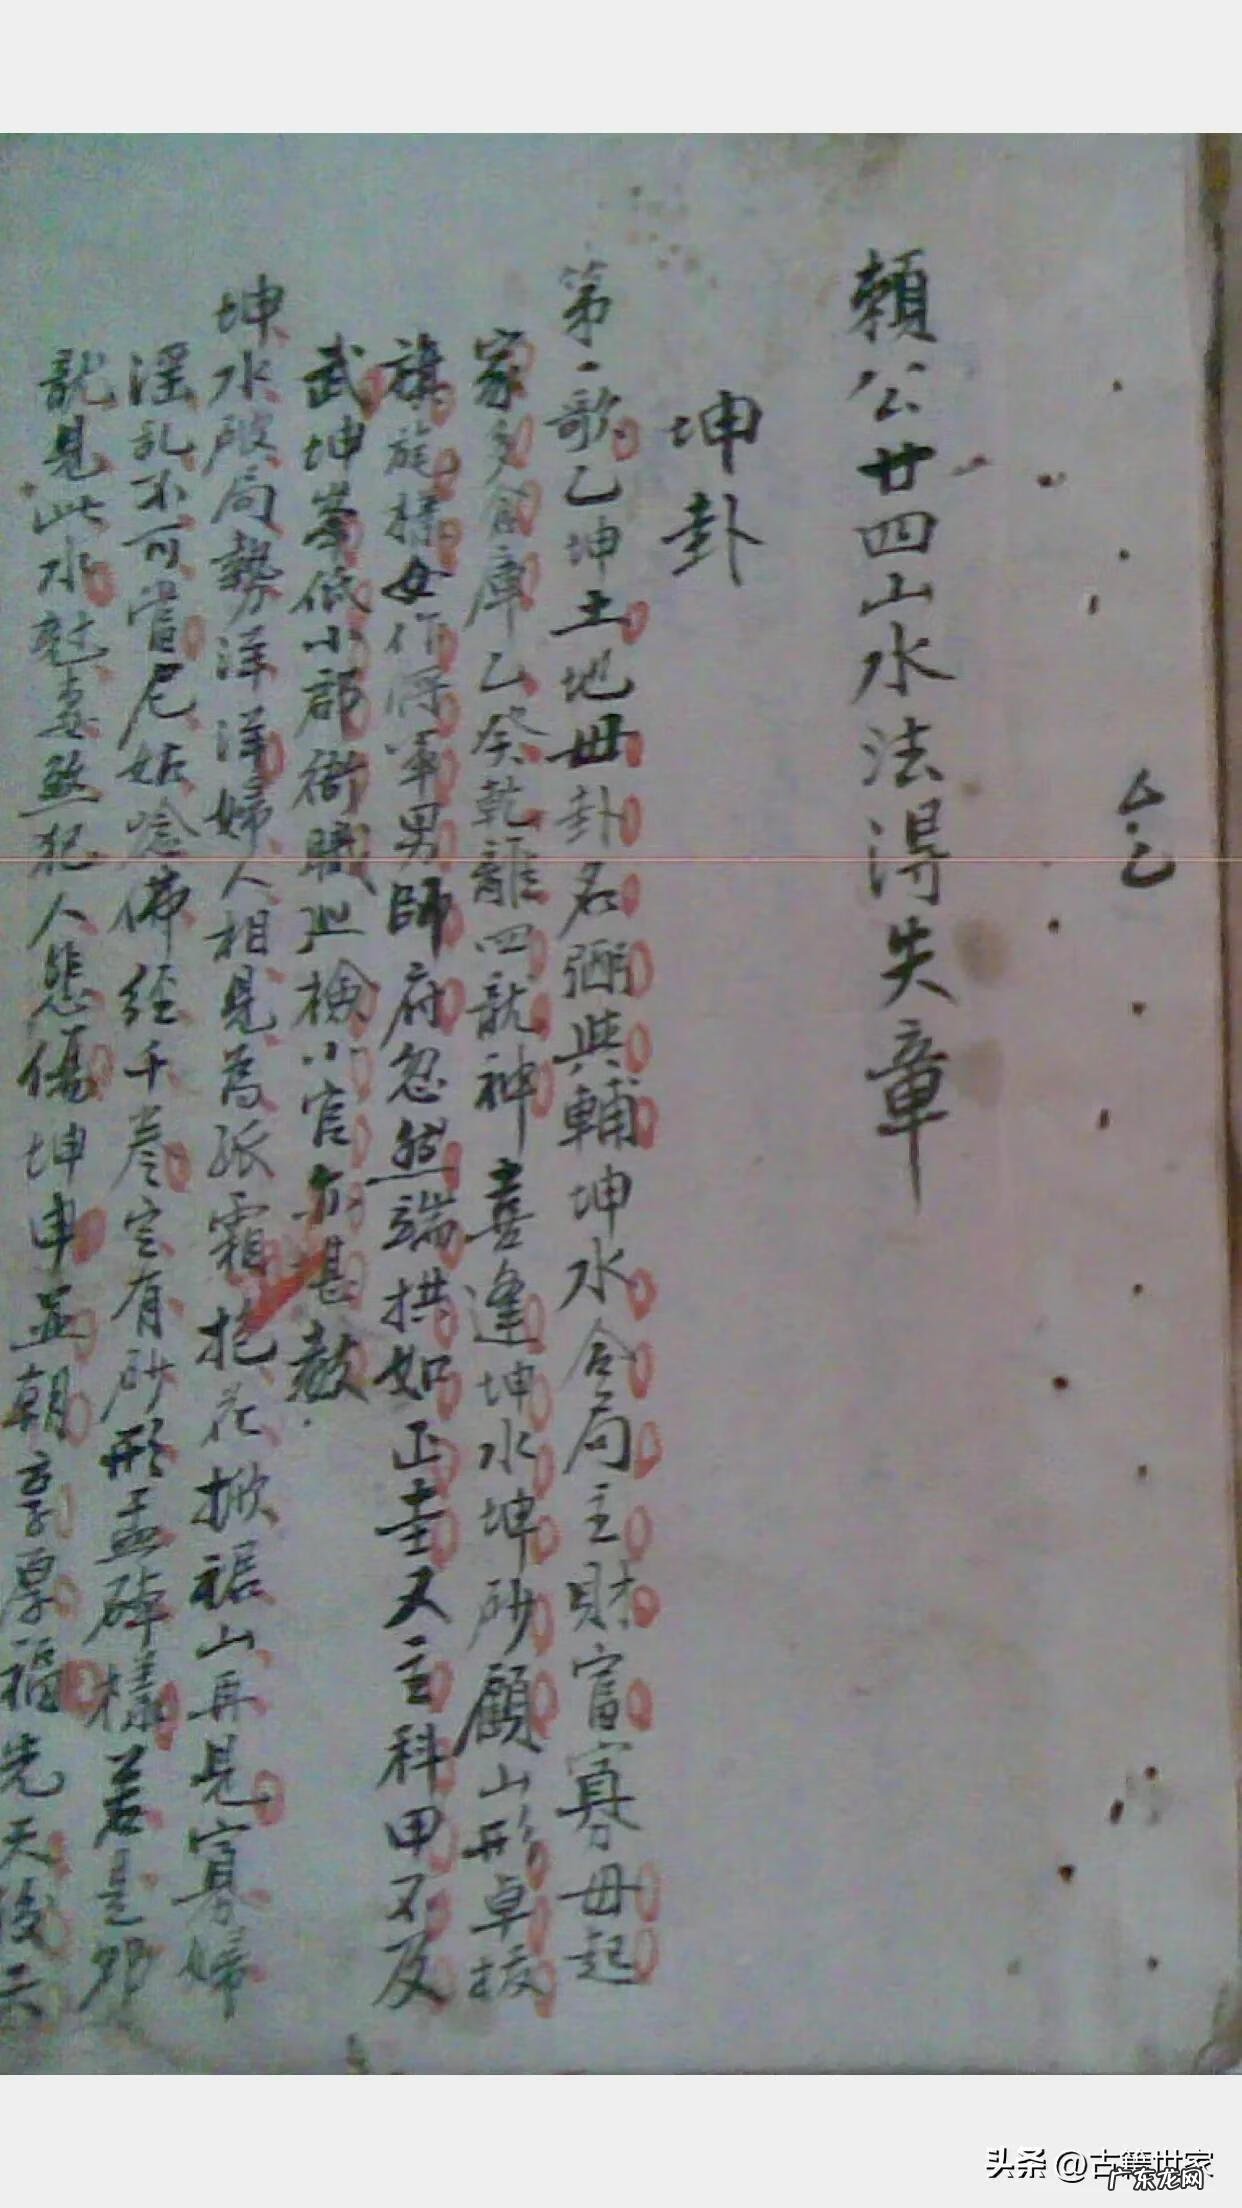 賴公廿四山水法得失章
坤卦
第一歌乙坤土地毋卦名弼與輔坤水合局主財富寡毋起
家多倉庫乙癸乾離四龍神喜逢坤水坤砂顧山形卓拔
旗旄樣女作將軍男師府忽然端拱如正圭又主科甲不及
武坤峯低小郡衙職巡檢小官亦甚
坤水破局勢洋洋婦人相見為孤霜抱花掀裾山再見寡婦
淫乱不可當尼姑念佛經千卷定有砂形盂碎樣若是
龍見此水
煞犯人悲傷坤申並朝享厚福先天後天
头条 @古籍世家
广东龙网